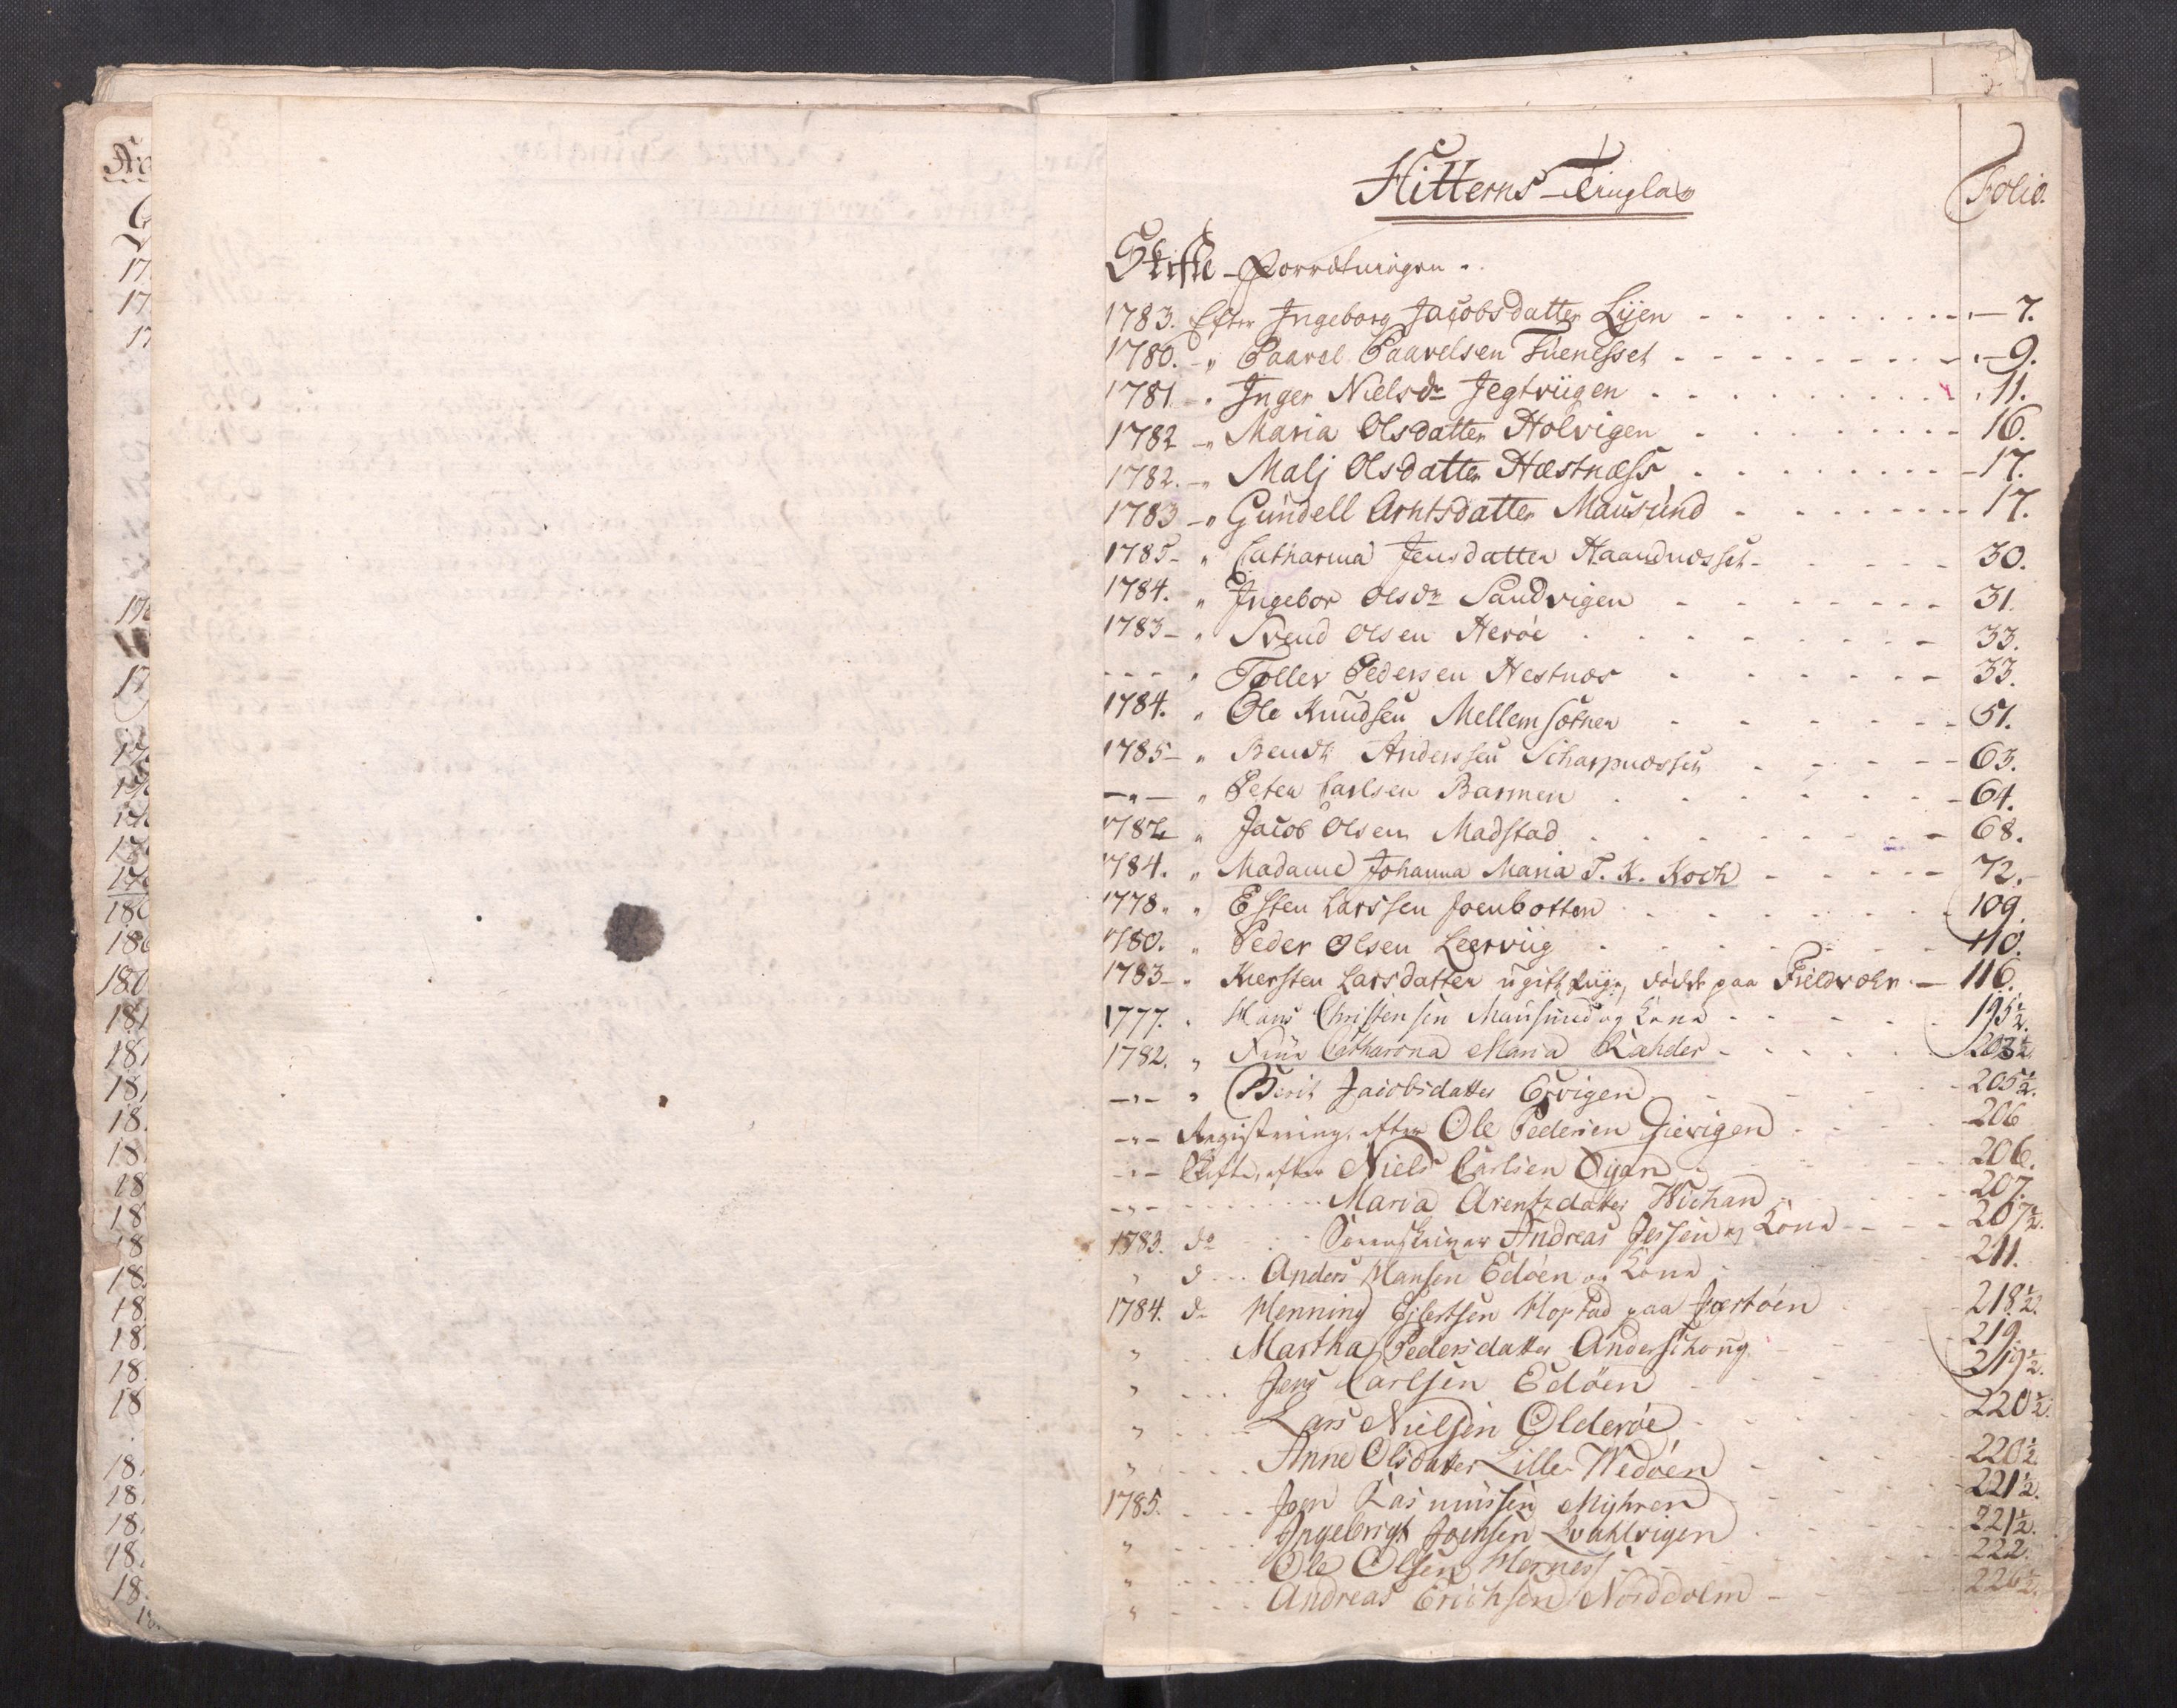 Hitterns Tinglav
Folio.
Skifte-Forretninger.
1783. Efter Ingeborg Jacobsdatter Lijen - 7.
1780. - " Paavel Paavelsen Fuenesset - 9.
1781. - " Inger Nielsdr Jegtviigen - 11.
1782 - " Maria Olsdatter Holvigen - 16.
1782. - " Malj Olsdatter Hæstnæss - 17.
1783 - " Gundell Arntsdatter Mausund - 17.
1785 - " Catharina Jensdatter Haandnesset - 30.
1784. " Ingebor Olsdr Sandvigen - 31.
1783 - " Svend Olsen Herøe - 33.
- - - " Toller Pedersen Hestnes - 33.
1784. " Ole Knudsen Mellemsætner - 51.
1785 - " Bendt Anderssen Scharpnesset - 63.
- " - " Peter Carlsen Barmen - 64.
1782 " Jacob Olsen Madstad - 68.
1784. " Madame Johanna Maria T. K. Koch - 72.
1778. " Esten Larssen Joenbotten - 109.
1780. " Peder Olsen Leerviig - 110.
1783 - " Kiersten Larsdatter ugift Piige, døde paa Fieldvær - 116.
1777. " Hans Christensen Mausund og Kone - 195½.
1782. " Frue Catharona Maria Rahder - 203½.
- " - " Berit Jacobsdatter Ervigen - 205½.
- " - Registrering, efter Ole Pedersen Gievigen - 206
- " - Skifte, efter Niels Carlsen Øijan - 206.
- " - Maria Arentzdatter Wichan - 207.
1783. do Sorenskriver Andreas Jessen og Kone - 207½.
" d Anders Hansen Edøen og Kone - 211.
1784. do Henning Ejlertsen Hopstad paa Jøstøen - 218½.
" Martha Pedersdatter Anderschoug - 219.
" Jens Carlsen Edøen - 219½.
" Lars Nielsen Olderøe - 220½.
" Anne Olsdatter Lille Wedøen - 220½
1785. Joen Rasmussen Myhren - 221½.
" Ingebrigt Joensen Qvahlvigen - 221½.
" Ole Olsen Herness - 222.
" Andreas Erichsen Norddolm - 226½.